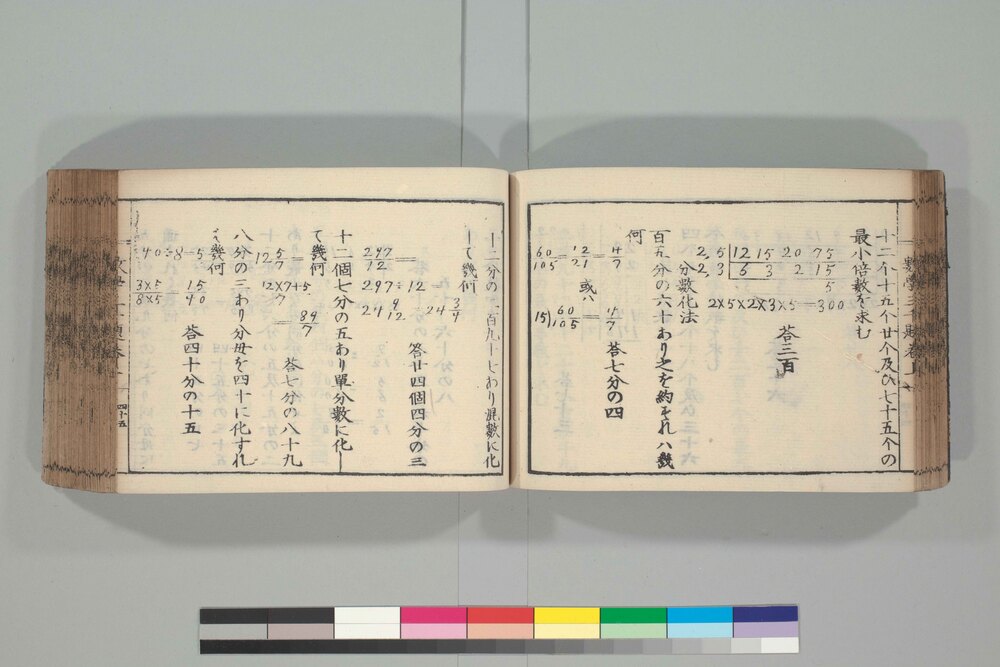 十二个十五个廿个及ひ七十五个の
最小倍數を求む
2, 5 12 15 20 75
2, 3 6 3 2 15
2×5×2×3×5=300
答三百
分數化法
百五分の六十あり之を約すれハ幾
何
60/105=12/21=4/7
或ハ
15)60/105=4/7
答七分の四
十二分の二百九十七あり混數に化
して幾何
297/12=
297÷12
24 9/12 24 3/4
答廿四個四分の三
十二個七分の五あり單分數に化し
て幾何
12 5/7=
12×7+5/7
=89/7
答七分の八十九
八分の三あり分母を四十に化すれ
ハ幾何
40÷8=5
3×5/8×5 15/40
答四十分の十五
四十五